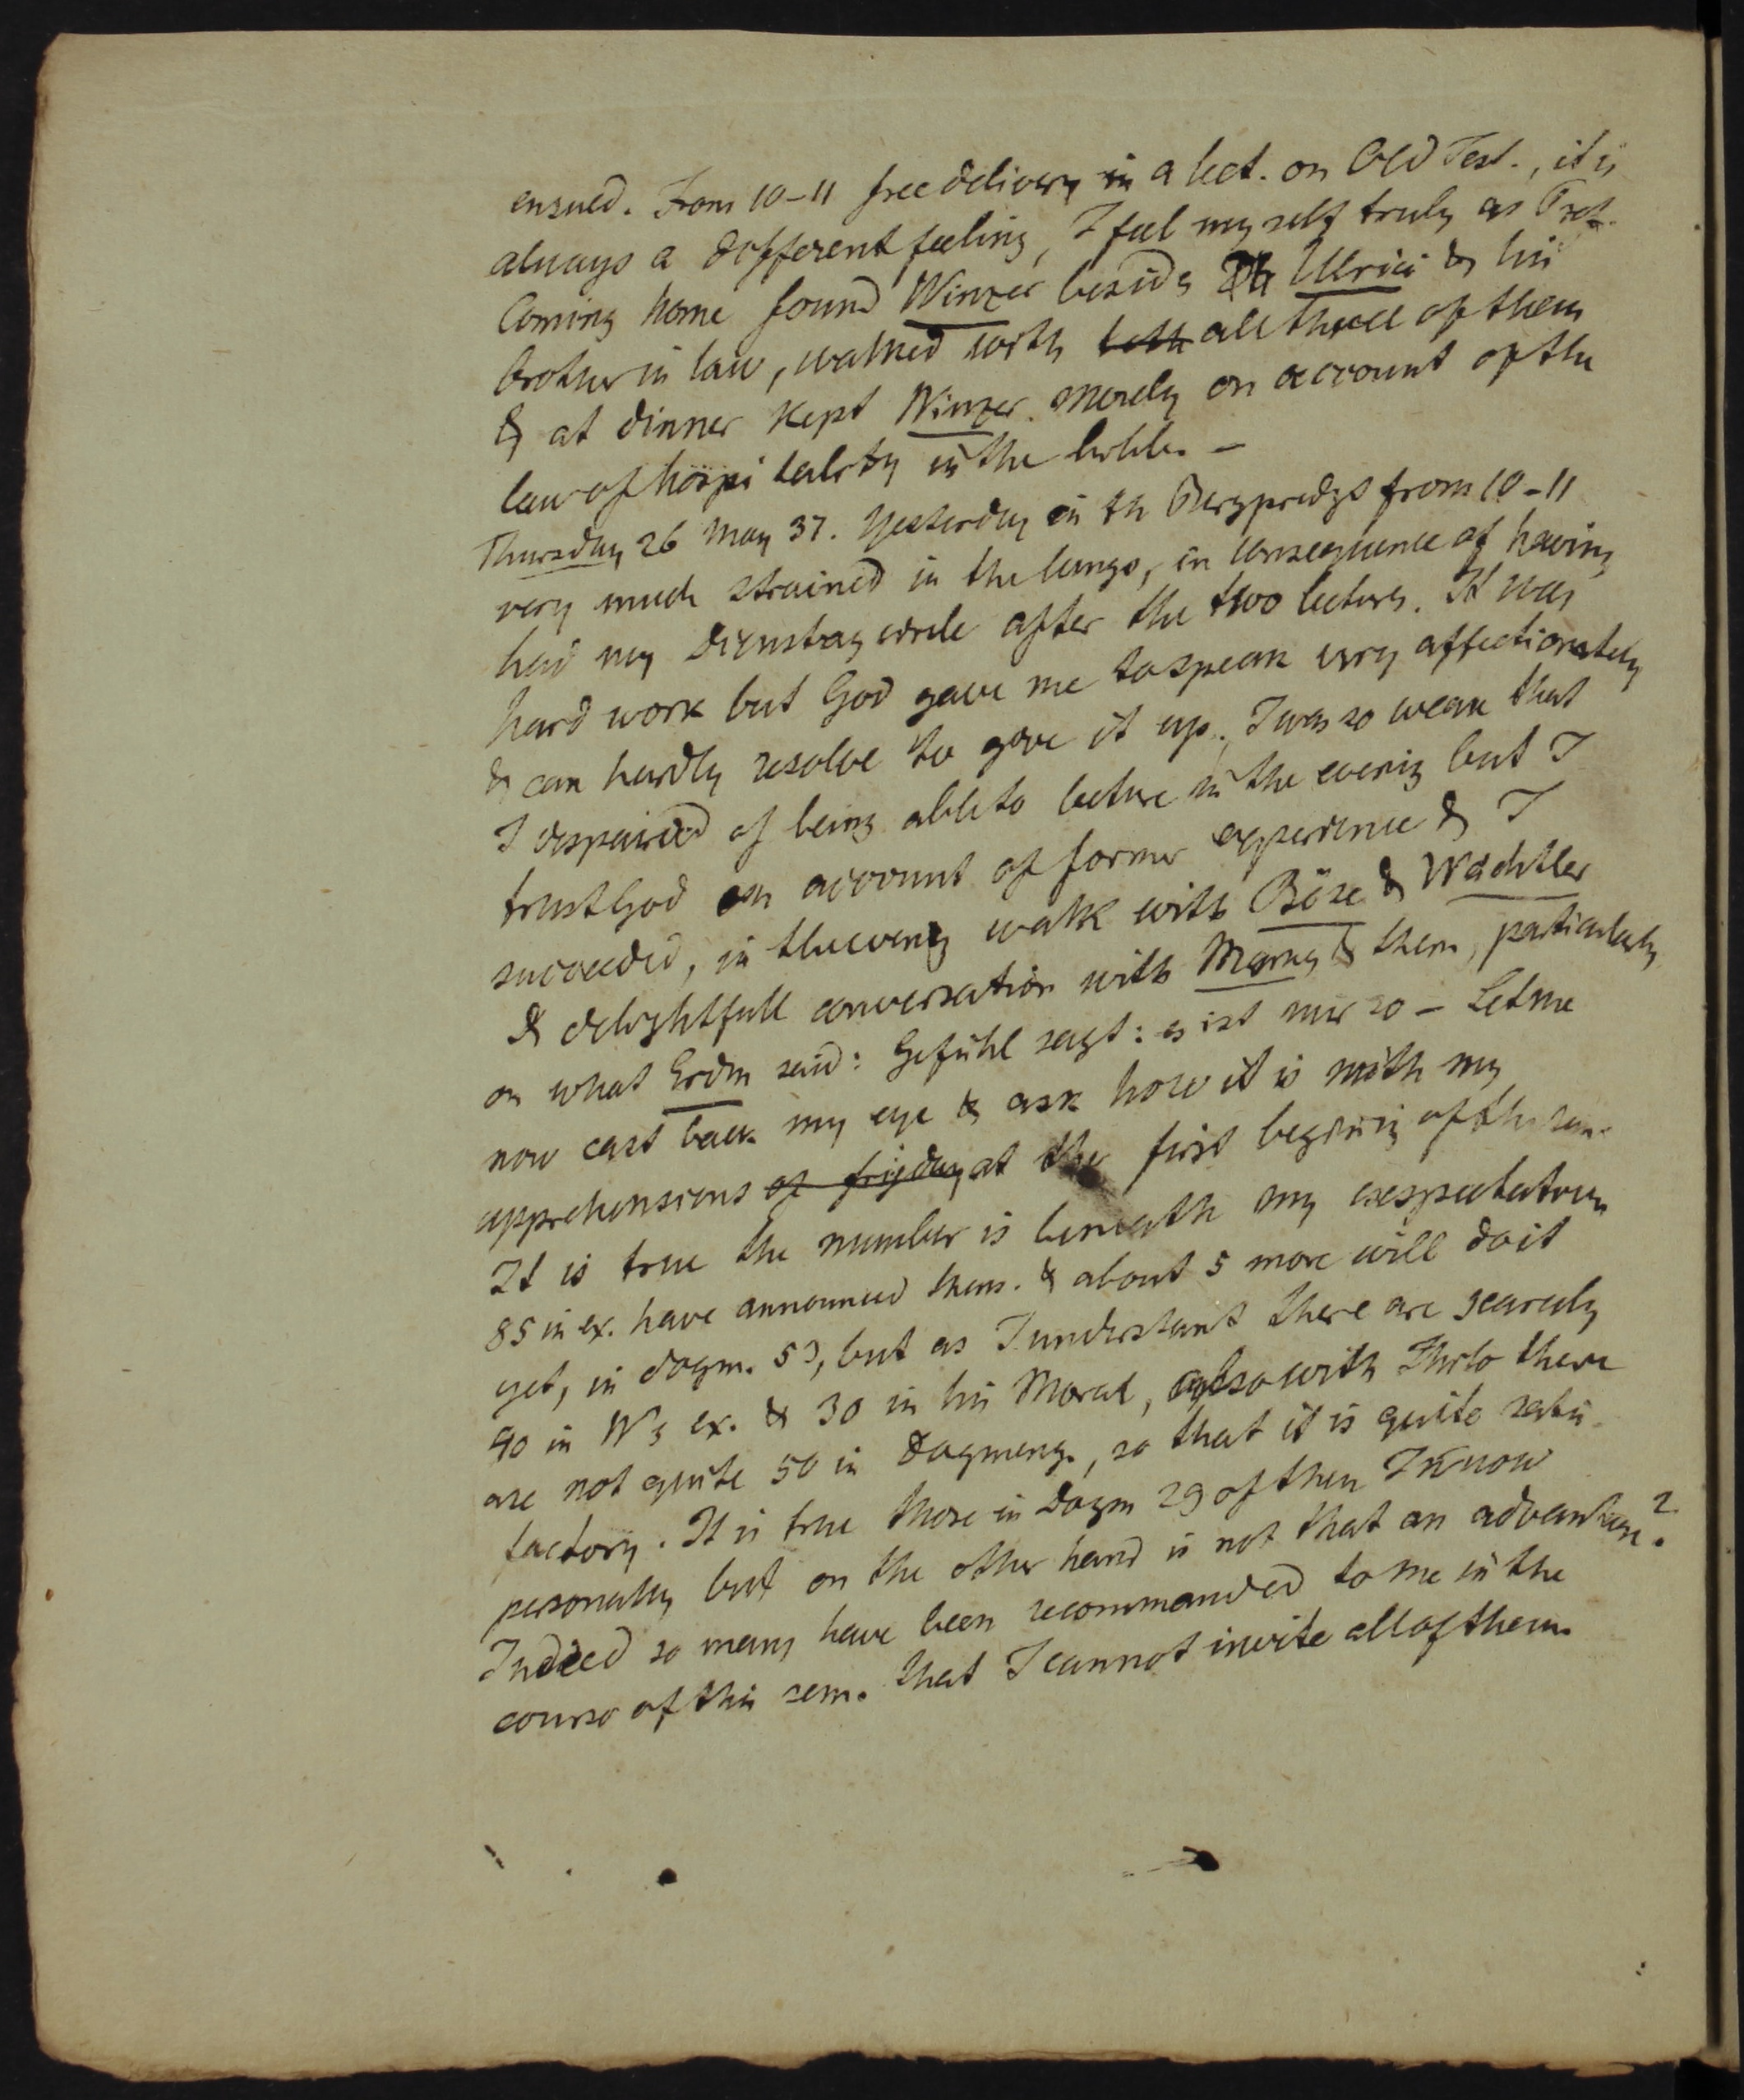 ensued. From 10-11 free delivery in a lect. on Old Test., it is
always a different feeling, I feel my self truly as Prof.
Coming home found Winzer besides Ulrici & his
brother in law, walked with both all three of them
& at dinner kept Winzer merely on account of the
law of hospitality in the bible. –
Thursday 26 May 37. Yesterday in the Bergpredgt from 10-11
very much strained in the lungs, in consequence of having
had my Dienstag circle after the two lectures. It was
hard work but God gave me to speak very affectionately
& can hardly resolve to give it up. I was so weak that
I despaired of being able to lecture in the evenig but I
trust God on account of former experience & I
succeeded, in the evenig walk with Böse & Wächtler
& delightfull conversation with & them, particularly
on what Erdm said: Gefühl sagt: es ist mir so – Let me
now cast back my eye & ask how it is with my
apprehensions of frijday at the first beginnig of the sem.
It is true the number is beneath my exspectation
85 in ex. have announced them. & about 5 more will do it
yet, in dogm. 53, but as I understant there are scarcely
40 in W's ex. & 30 in his Moral, also with Thilo there
are not quite 50 in Dogmeng., so that it is quite satis-
factory. It is true those in Dogm 29 of them I know
personally but on the other hand is not that an advantage?
Indeed so many have been recommanded to me in the
course of this sem. that I cannot invite all of them.